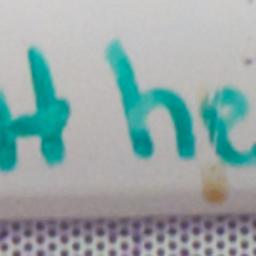 H he